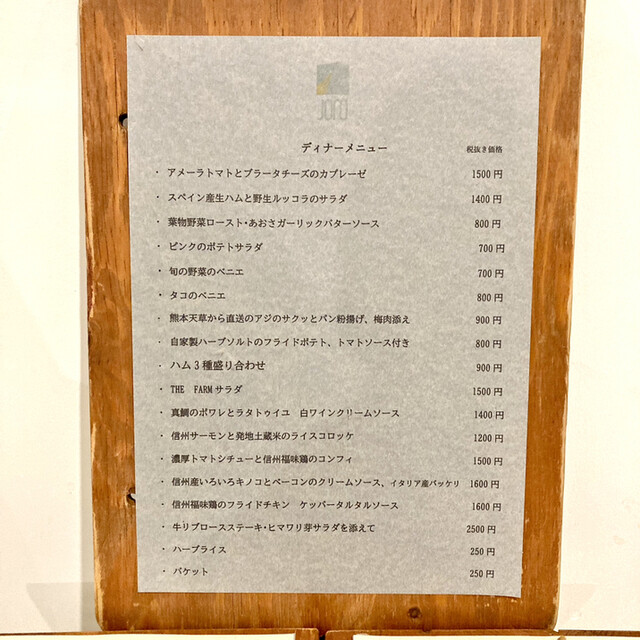 JORO
ディナーメニュー 税抜き価格
・アメーラトマトとブラータチーズのカプレーゼ 1500円
・スペイン産生ハムと野生ルッコラのサラダ 1400円
・葉物野菜ロースト・あおさガーリックバターソース 800円
・ピンクのポテトサラダ 700円
・旬の野菜のベニエ 700円
・タコのベニエ 800円
・熊本天草から直送のアジのサクッとパン粉揚げ、梅肉添え 900円
・自家製ハーブソルトのフライドポテト、トマトソース付き 800円
・ハム3種盛り合わせ 900円
・THE FARMサラダ 1500円
・真鯛のポワレとラタトゥイユ 白ワインクリームソース 1400円
・信州サーモンと発地土蔵米のライスコロッケ 1200円
・濃厚トマトシチューと信州福味鶏のコンフィ 1500円
・信州産いろいろキノコとベーコンのクリームソース、イタリア産パッケリ 1600円
・信州福味鶏のフライドチキン ケッパータルタルソース 1600円
・牛リブロースステーキ・ヒマワリ芽サラダを添えて 2500円
・ハーブライス 250円
・バケット 250円